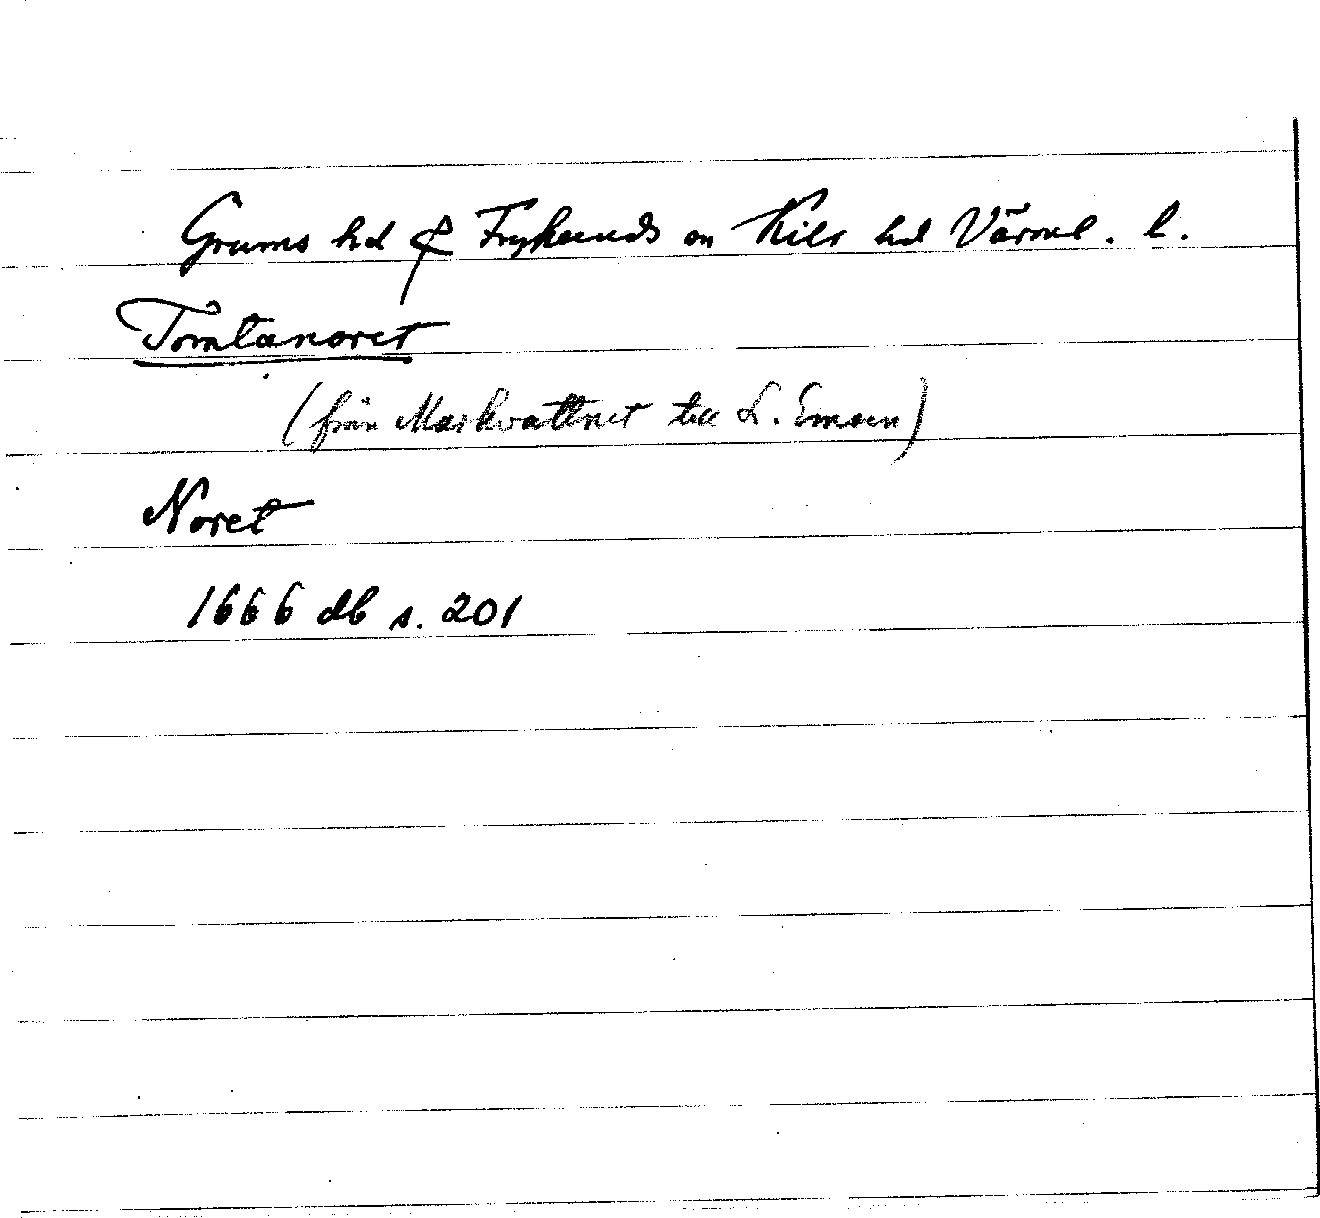 Grums hd & Frykerud sn Kils hd Värml. l.
Tomtanoret
(från Markvattnet till L. Emsen)
Noret
1666 db s. 201